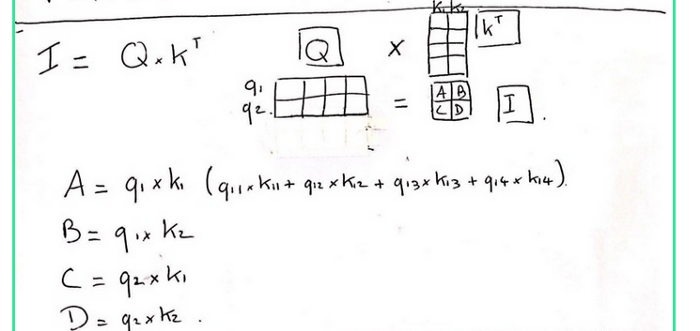 k₁ k₂
I = Q × kᵀ
Q × kᵀ
q₁
q₂
= A B
C D
I.
A = q₁ × k₁ (q₁₁ × k₁₁ + q₁₂ × k₁₂ + q₁₃ × k₁₃ + q₁₄ × k₁₄).
B = q₁ × k₂
C = q₂ × k₁
D = q₂ × k₂.